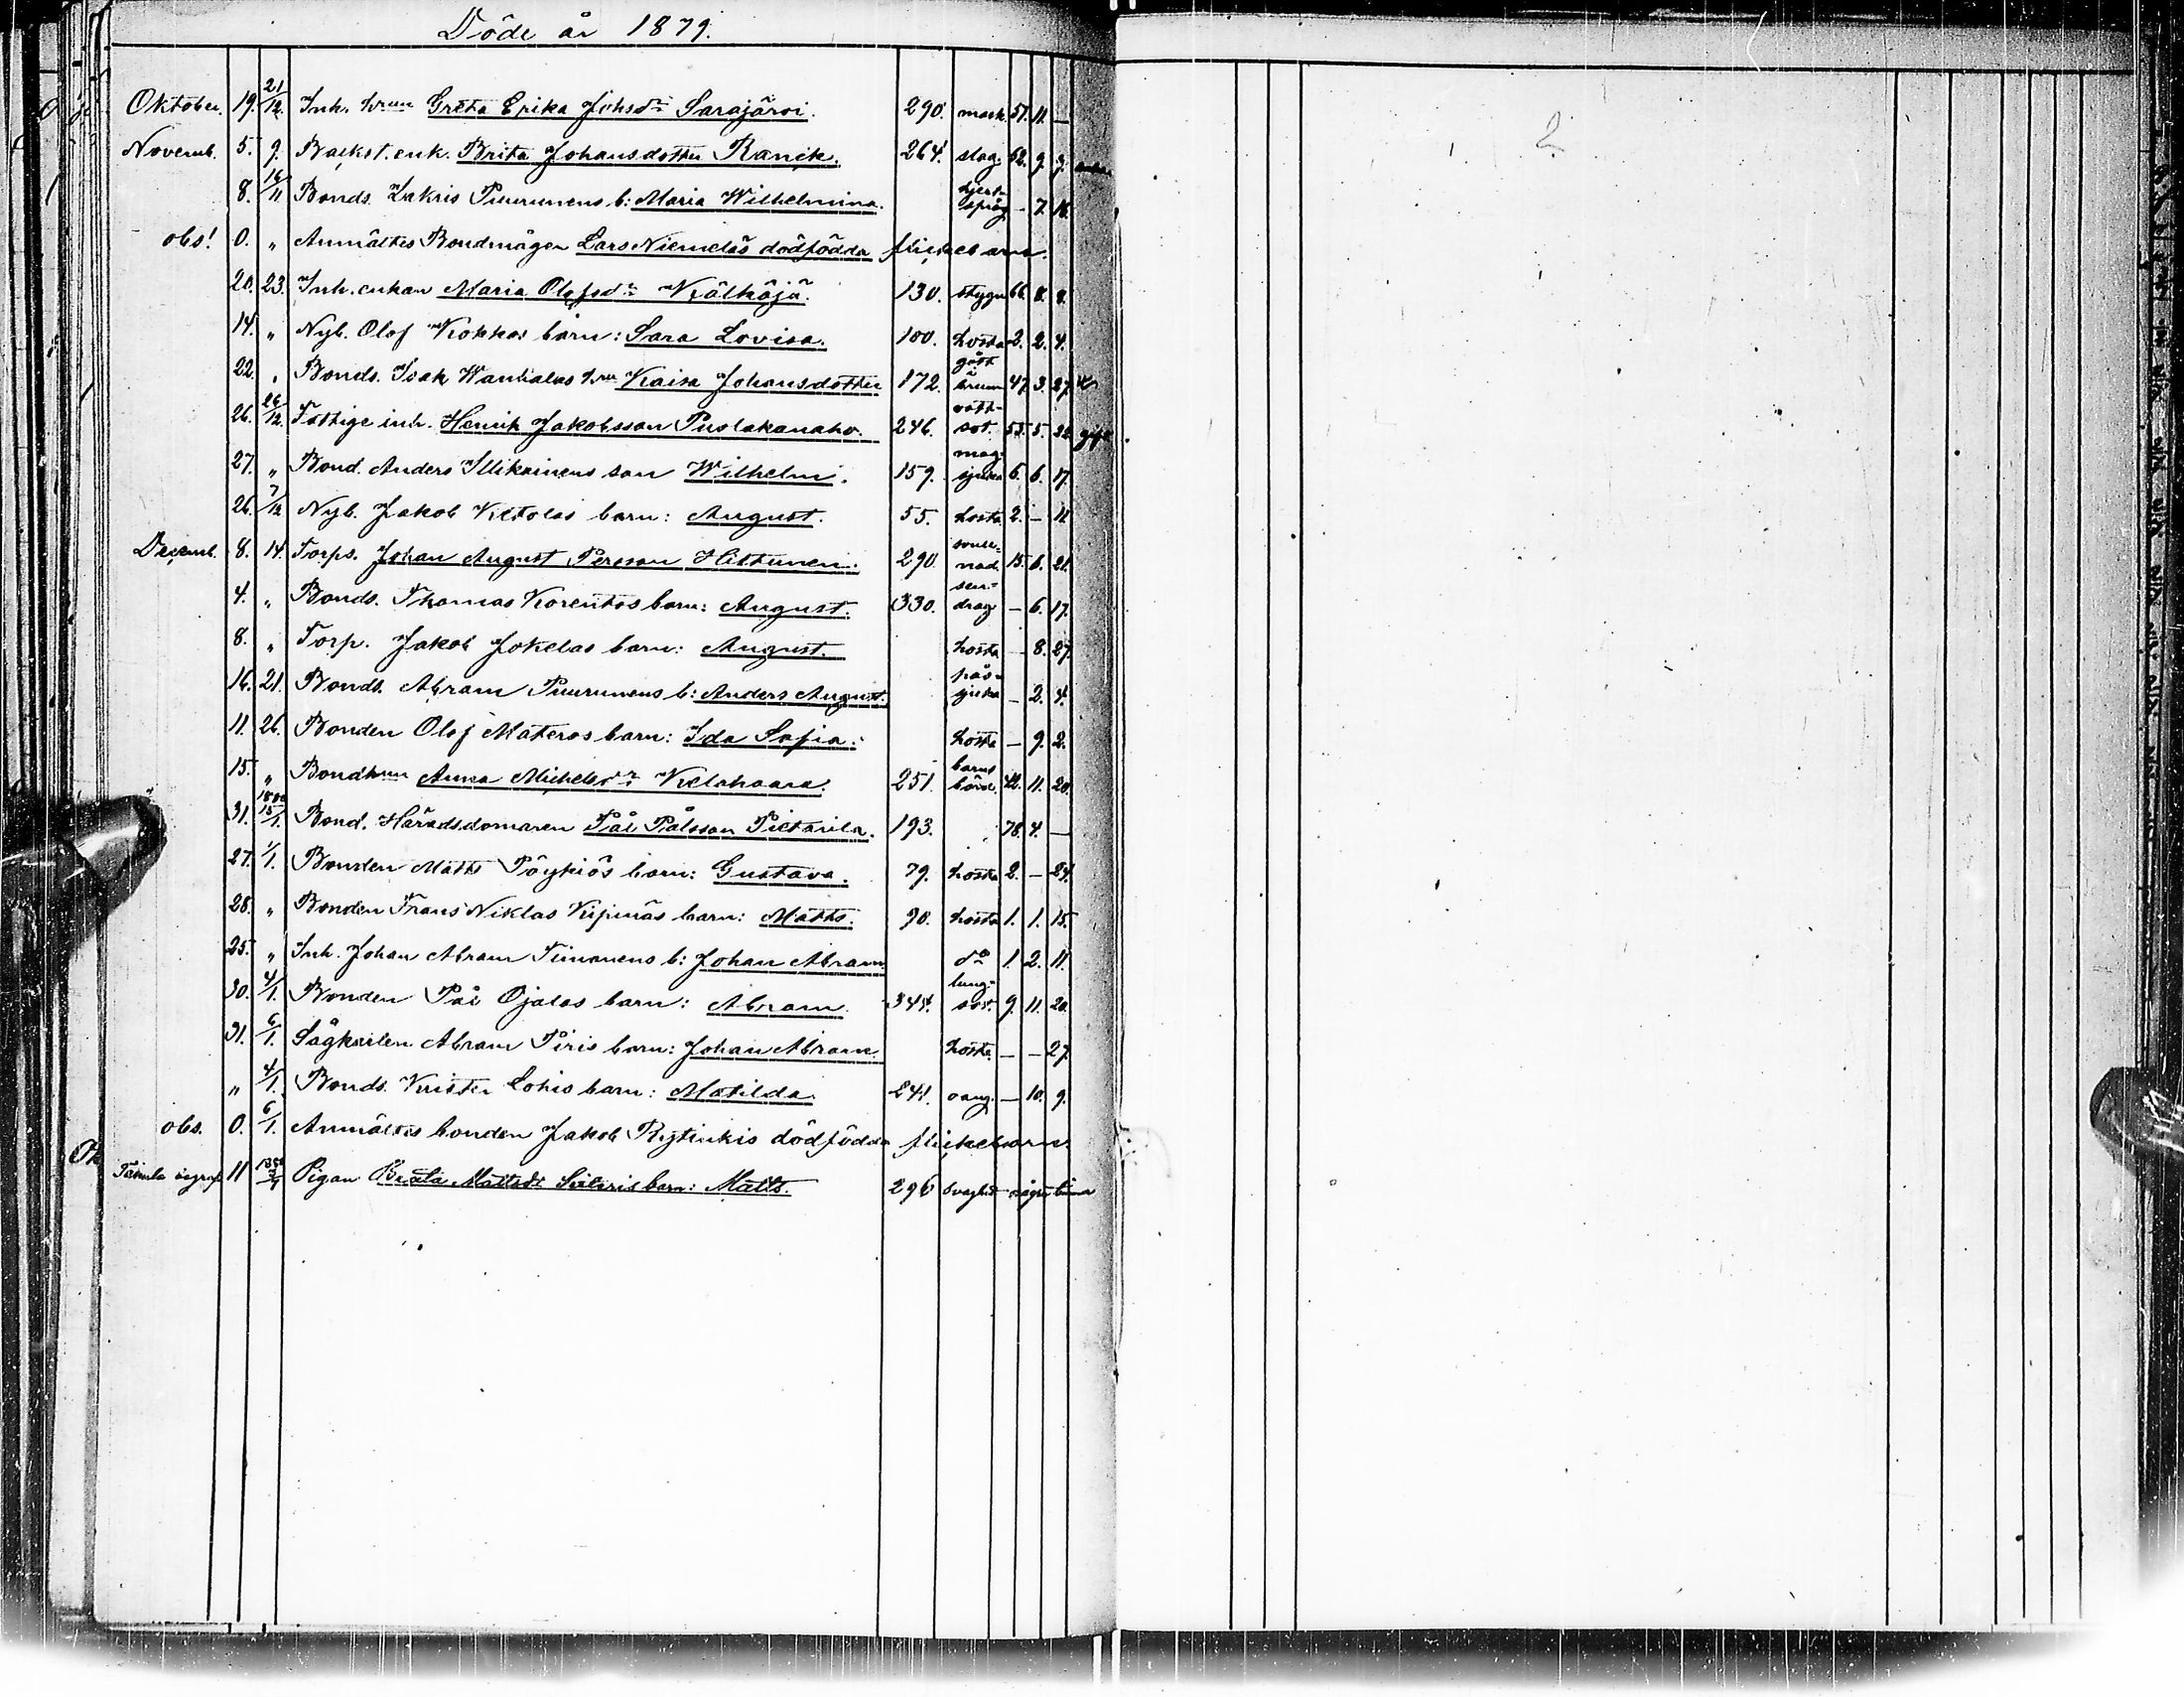 Döde år 1879.
Oktober. 19. 21/12. Inh. hrun Greta Erika Johsdr Sarajärvi. 290. mask. 57. 11. —
Novemb. 5. 9. Backst. enk. Brita Johansdotter Ranck. 264. slag. 62. 9. 9.
8. 16/11 Bonds. Zakris Puurunens b: Maria Wilhelmina. hjertspång - 7. 16.
obs! 0. " Anmältes Bondmågen Lars Niemeläs dödfödda flickebarn.
20. 23. Inh. enkan Maria Olofsdr Kälkäjä. 130. stygn 66. 8. 8.
14. " Nyb. Olof Kokkos barn: Sara Lovisa. 100. hosta 2. 2. 4.
22. " Bonds. Isak hru Kaisa Johansdotter 172. 47. 3. 27.
26. 26/12. Fattige inh. Henrik Jakobsson Puolakanaho. 246. vattsot. 55. 5. 22. gift
27. " Bond. Anders Illikainens son Wilhelm. 159. magsjuka 6. 6. 17.
26. 7/12 Nyb. Jakob Ketolas barn: August. 55. hosta 2. — 11
Decemb. 8. 14. Torps. Johan August Persson Hiltunen. 290. 15. 6. 21.
4. " Bonds. Thomas Korentos barn: August. 330. sendrag — 6. 17.
8. " Torp. Jakob Jokelas barn: August. hosta — 8. 27.
16. 21. Bonds. Abram Puurunens b: Anders August. sjuka — 2. 4.
11. 26. Bonden Olof Materos barn: Ida Sofia. hosta — 9. 2.
15. " Bondhrun Anna Michelsdr Kelahaara. 251. barnsbörd. 42. 11. 20.
31. 1880 15/1. Bond. Häradsdomaren Pål Pålsson Pietarila. 193. 78. 4. —
27. 1/1. Bonden Matts Pöykiös barn: Gustava. 79. hosta 2. — 24.
28. " Bonden Frans Niklas Kipinäs barn: Matts. 90. hosta 1. 1. 15.
25. " Inh. Johan Abram Timonens b: Johan Abram. do 1. 2. 11.
30. 4/1. Bonden Pål Ojalas barn: Abram. 344. lungsot. 9. 11. 20.
31. 6/1. Sågkarlen Abram Piris barn: Johan Abram. hosta — — 27.
" 4/1. Bonds. Krister Lohis barn: Matilda. 241. oang. — 10. 9.
obs. 0. 6/1. Anmältes bonden Jakob Rytinkis dödfödda flickebarn.
11 1880 Pigan Beata Mattsdr barn: Matts. 296 svaghet några timmar